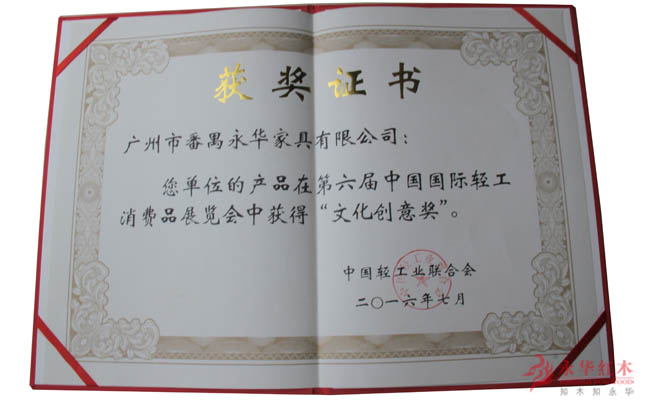 获奖证书
广州市番禺永华家具有限公司：
您单位的产品在第六届中国国际轻工
消费品展览会中获得“文化创意奖”。
中国轻工业联合会
二〇一六年七月
永华红木
知木知永华